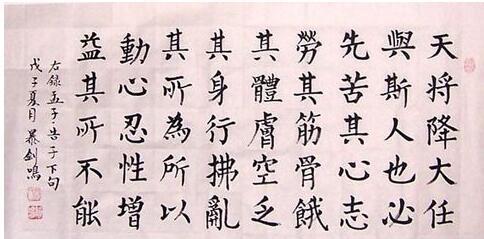 天将降大任
與斯人也必
先苦其心志
勞其筋骨餓
其體膚空乏
其身行拂亂
其所為所以
動心忍性增
益其所不能
右錄孟子·告子下句
戊子夏月 暴剑鳴